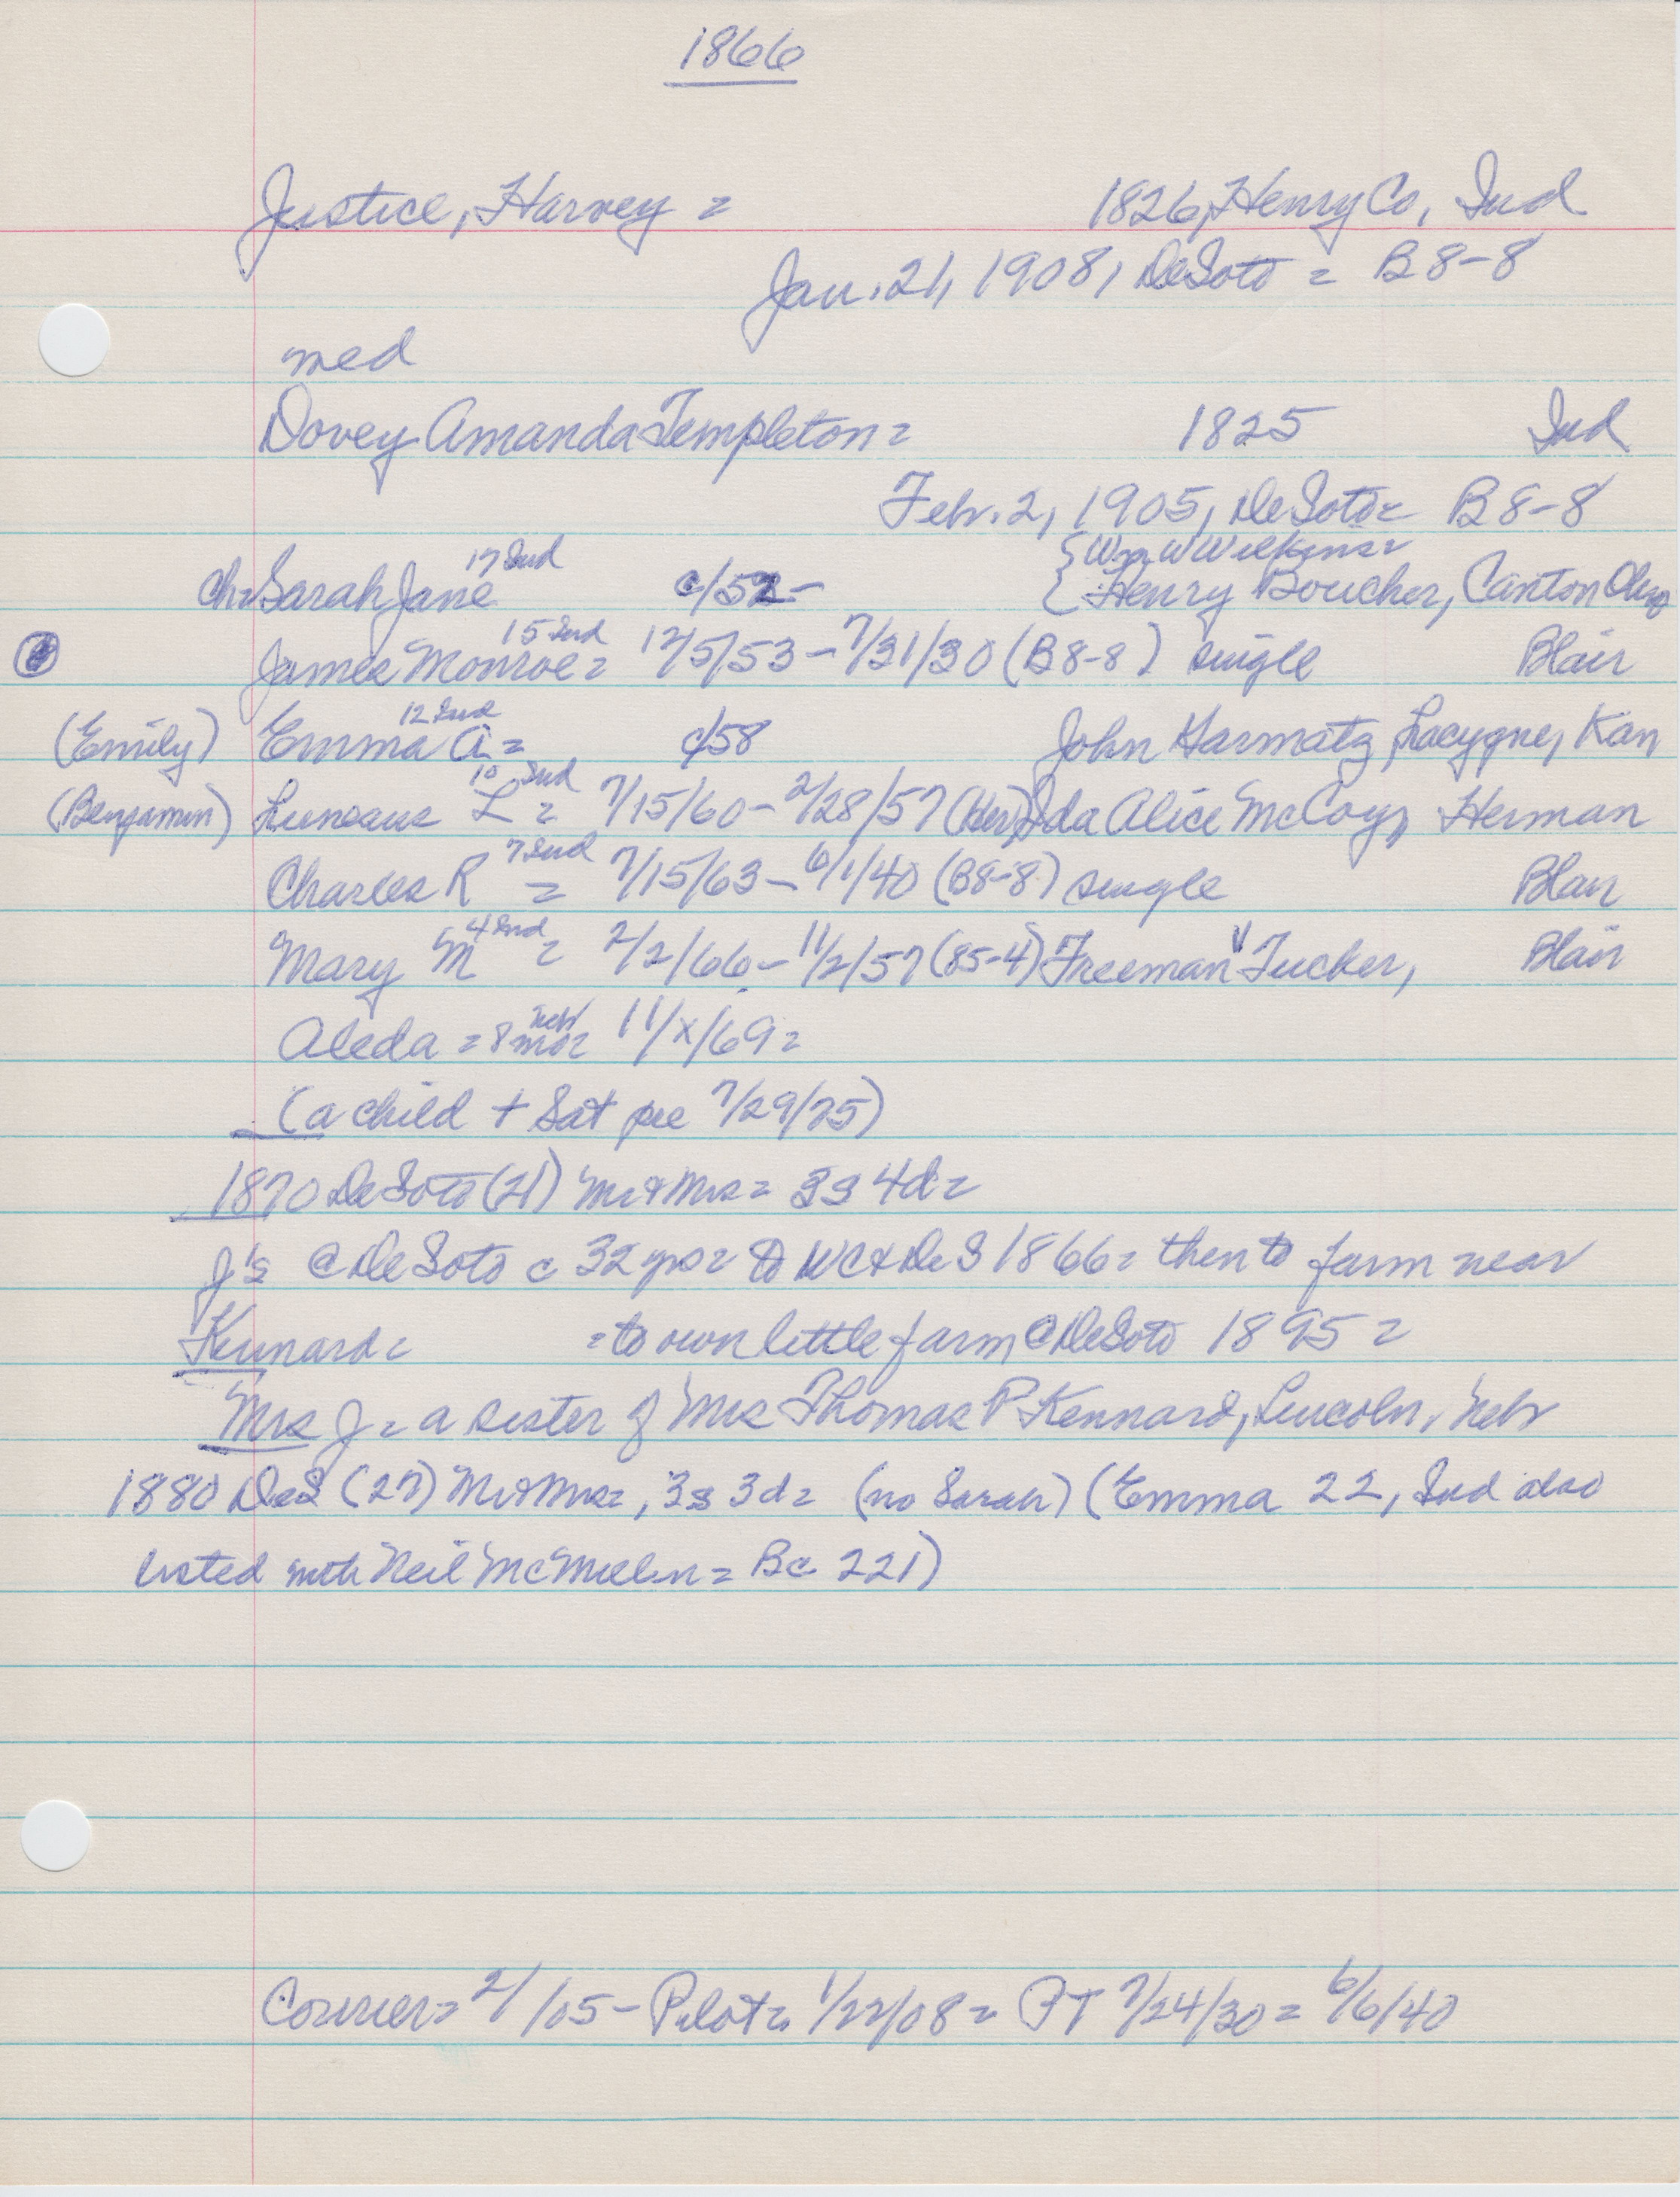 1866
Justice, Harvey = 1826, Henry Co, Ind
Jan. 21, 1908, DeSoto = B8-8
med
Dovey Amanda Templeton = 1825 Ind
Feb. 2, 1905, DeSoto = B8-8
17 Ind {Wm W Wilkins =
ch = Sarah Jane c/52- {Henry Boucher, Canton
15 Ind
James Monroe = 12/5/53 - 7/31/30 (B8-8) single Blair
12 Ind
(Emily) Emma A = c/58 John Harmatz, Lacygne, Kan
10 Ind
(Benjamin) L = 7/15/60 - 2/28/57 (Her) Ida Alice McCoy, Herman
7 Ind
Charles R = 7/15/63 - 6/1/40 (B8-8) single Blair
4 Ind
Mary M = 2/2/66 - 11/2/57 (85-4) Freeman V Tucker, Blair
Neb
Aleda = 8 mo = 11/x/69 =
(a child + Sat pre 7/29/75)
1870 DeSoto (21) Mr & Mrs = 3s 4d =
J's @ DeSoto c 32 yrs = to WC & DeS 1866 = then to farm near
Kennard = = to own little farm @ DeSoto 1895 =
Mrs J = a sister of Mrs Thomas P Kennard, Lincoln, Nebr
1880 DeS (27) Mr & Mrs =, 3s 3d = (no Sarah) (Emma 22, Ind also
listed with Neil = Bc 221)
Courier = 2/ /05 - Pilot = 1/22/08 = PT 7/24/30 = 6/6/40